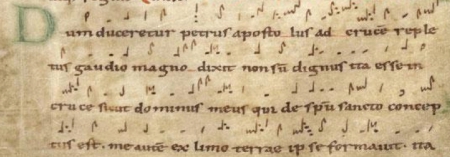 Dum duceretur petrus aposto lus ad cruce reple
tus gaudio magno dixit non sū dignus ita esse in
cruce sicut dominus meus qui de spū sancto concep
tus est. me autē ex limo terrae ipse formavit. ita